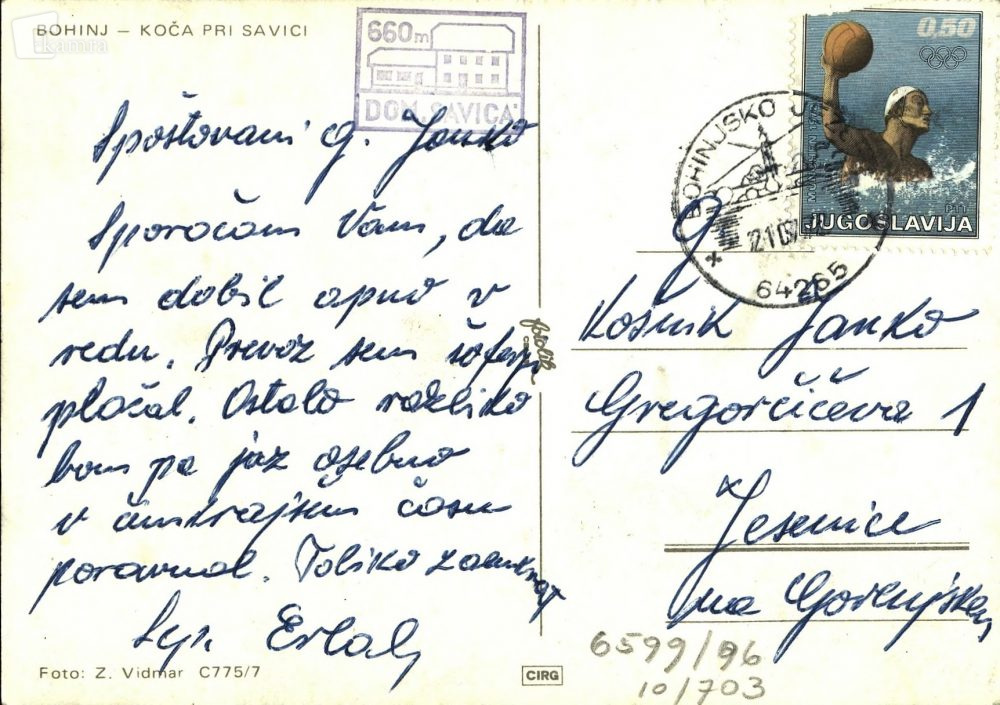 BOHINJ – KOČA PRI SAVICI
kamra
660m
DOM "SAVICA"
Spoštovani g. Janko
Sporočam Vam, da
sem dobil apno v
redu. Prevoz sem šoferju
plačal. Ostalo razliko
bom pa jaz osebno
v čimkrajšem času
poravnal. Toliko zaenkrat
Foto: Z. Vidmar C775/7
fotolik
CIRG
0,50
PTT
JUGOSLAVIJA
BOHINJSKO
64265
g.
Košnik Janko
Gregorčičeva 1
Jesenice
na Gorenjskem
6599/96
10/703